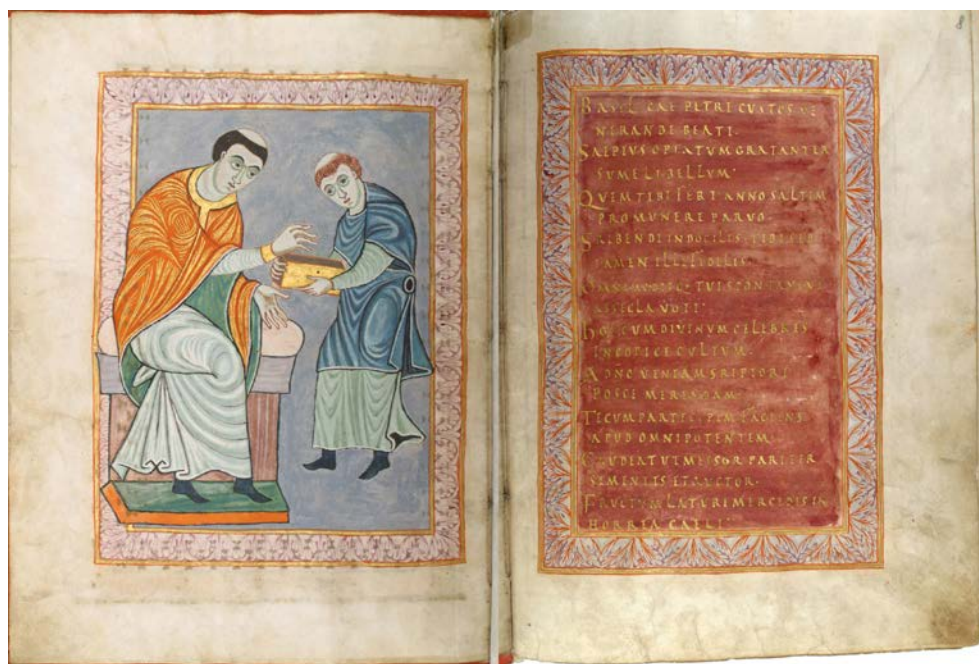 BASILICAE PETRI CUSTOS UE
NERANDE BEATI.
SALPIUS OPTATUM GRATANTER
SUME LIBELLUM.
QUEM TIBI FERT ANNO SALTIM
PRO MUNERE PARUO.
SCRIBENDI INDOCILIS TIBI SED
TAMEN ILLE FIDELIS.
TUI
ASSECLA UOTI.
HOC CUM DIUINUM CELEBRES
IN CODICE CULTUM.
UENIAM SCRIPTORI
POSCE
TECUM
APUD OMNIPOTENTEM
UT MESSOR PARITER
SEMENTIS ET AUCTOR.
FRUCTUM LATURI MERCEDIS IN
HORREA CAELI.